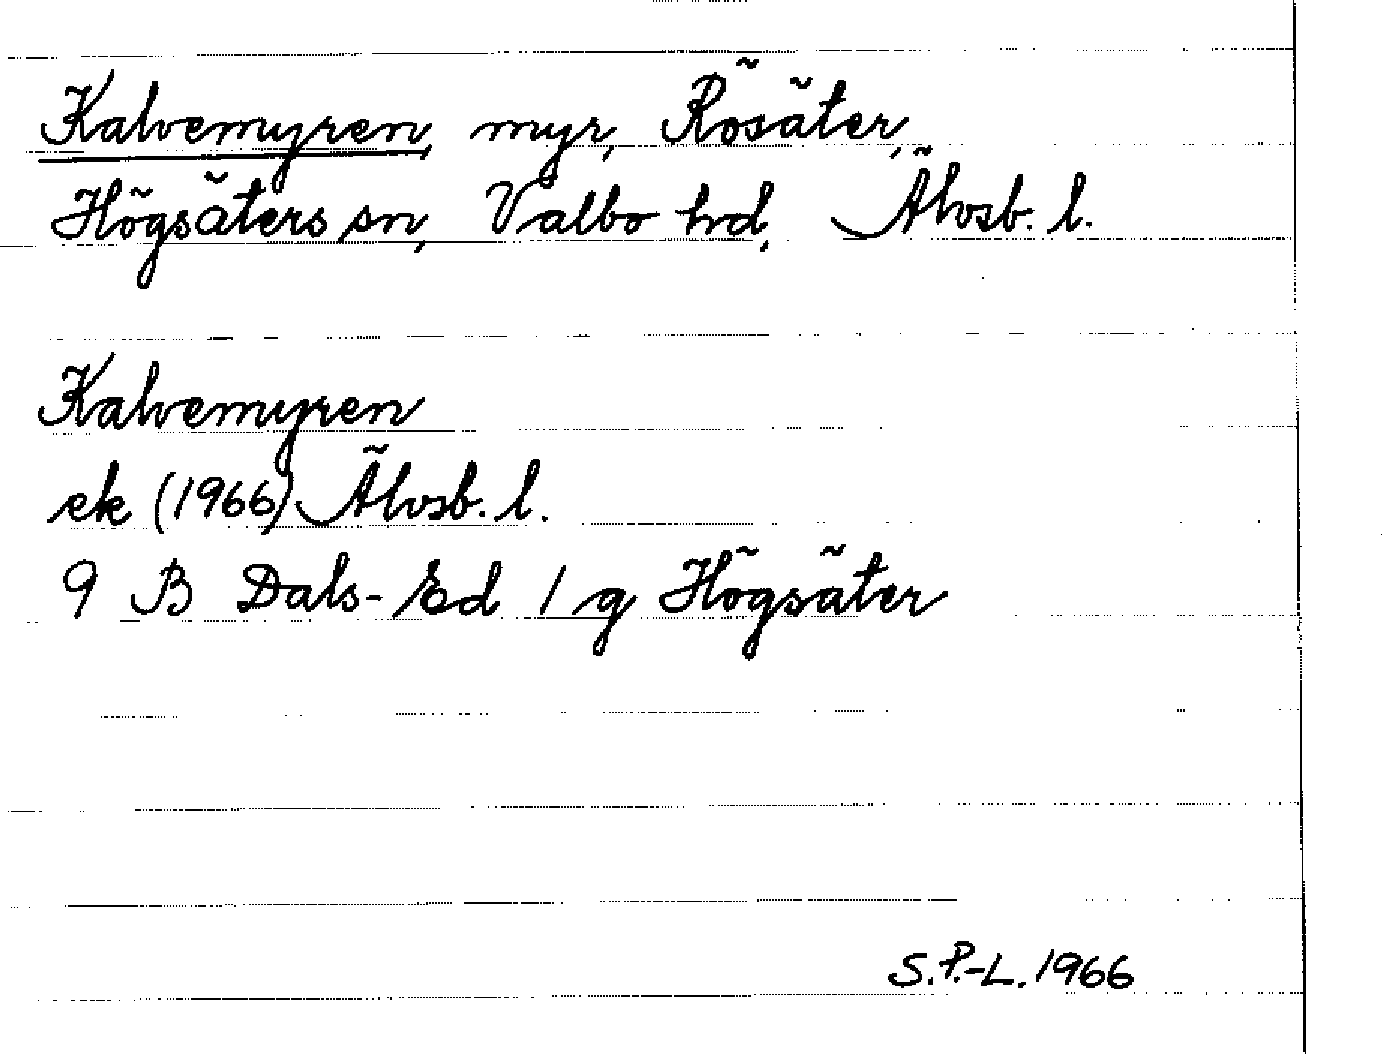 Kalvemyren, myr, Rösäter,
Högsäters sn, Valbo hd, Älvsb. l.
Kalvemyren
ek (1966) Älvsb. l.
9 B Dals-Ed 1 g Högsäter
S.P.-L. 1966